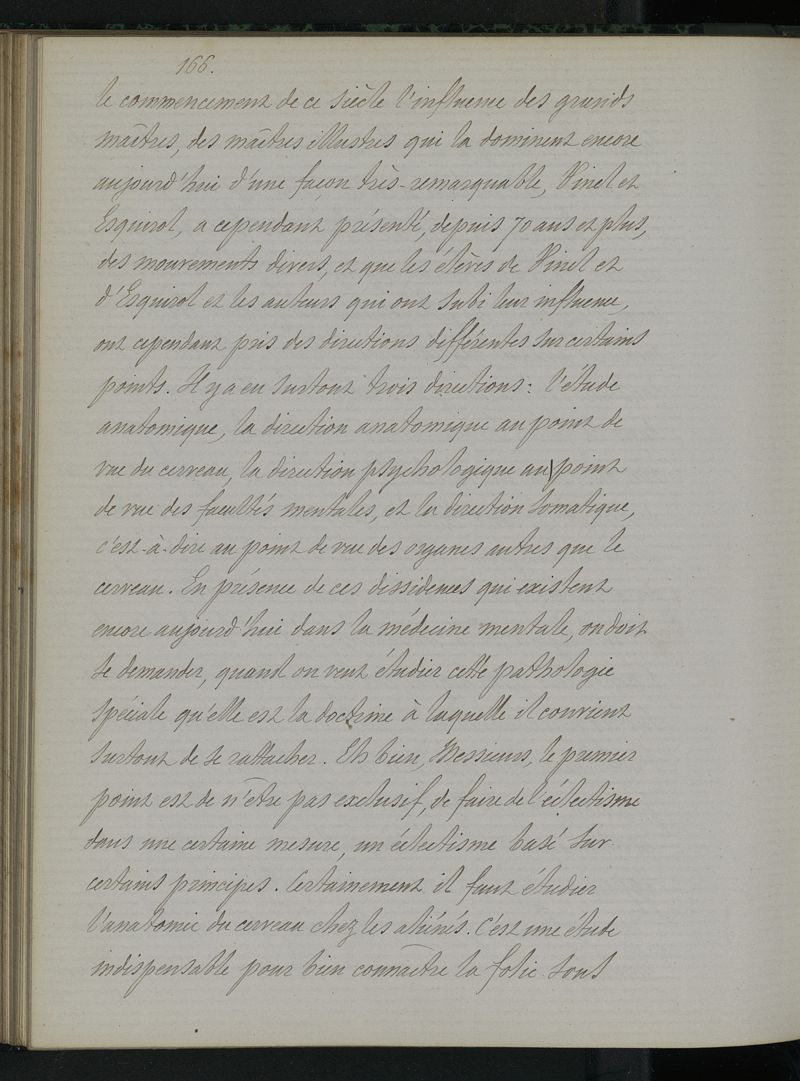 166.
le commencement de ce siècle l'influence des grands
maîtres, des maîtres illustres qui la dominent encore
aujourd'hui d'une façon très-remarquable, Pinel et
Esquirol, a cependant présenté, depuis 70 ans et plus,
des mouvements divers, et que les élèves de Pinel et
d'Esquirol et les auteurs qui ont subi leur influence,
ont cependant pris des directions différentes sur certains
points. Il y a eu surtout trois directions: l'étude
anatomique, la direction anatomique au point de
vue du cerveau, la direction psychologique au point
de vue des facultés mentales, et la direction somatique,
c'est-à-dire au point de vue des organes autres que le
cerveau. En présence de ces dissidences qui existent
encore aujourd'hui dans la médecine mentale, on doit
se demander, quand on veut étudier cette pathologie
spéciale qu'elle est la doctrine à laquelle il convient
surtout de se rattacher. Eh bien, Messieurs, le premier
point est de n'être pas exclusif, de faire de l'éclectisme
dans une certaine mesure, un éclectisme basé sur
certains principes. Certainement il faut étudier
l'anatomie du cerveau chez les aliénés. C'est une étude
indispensable pour bien connaître la folie sous